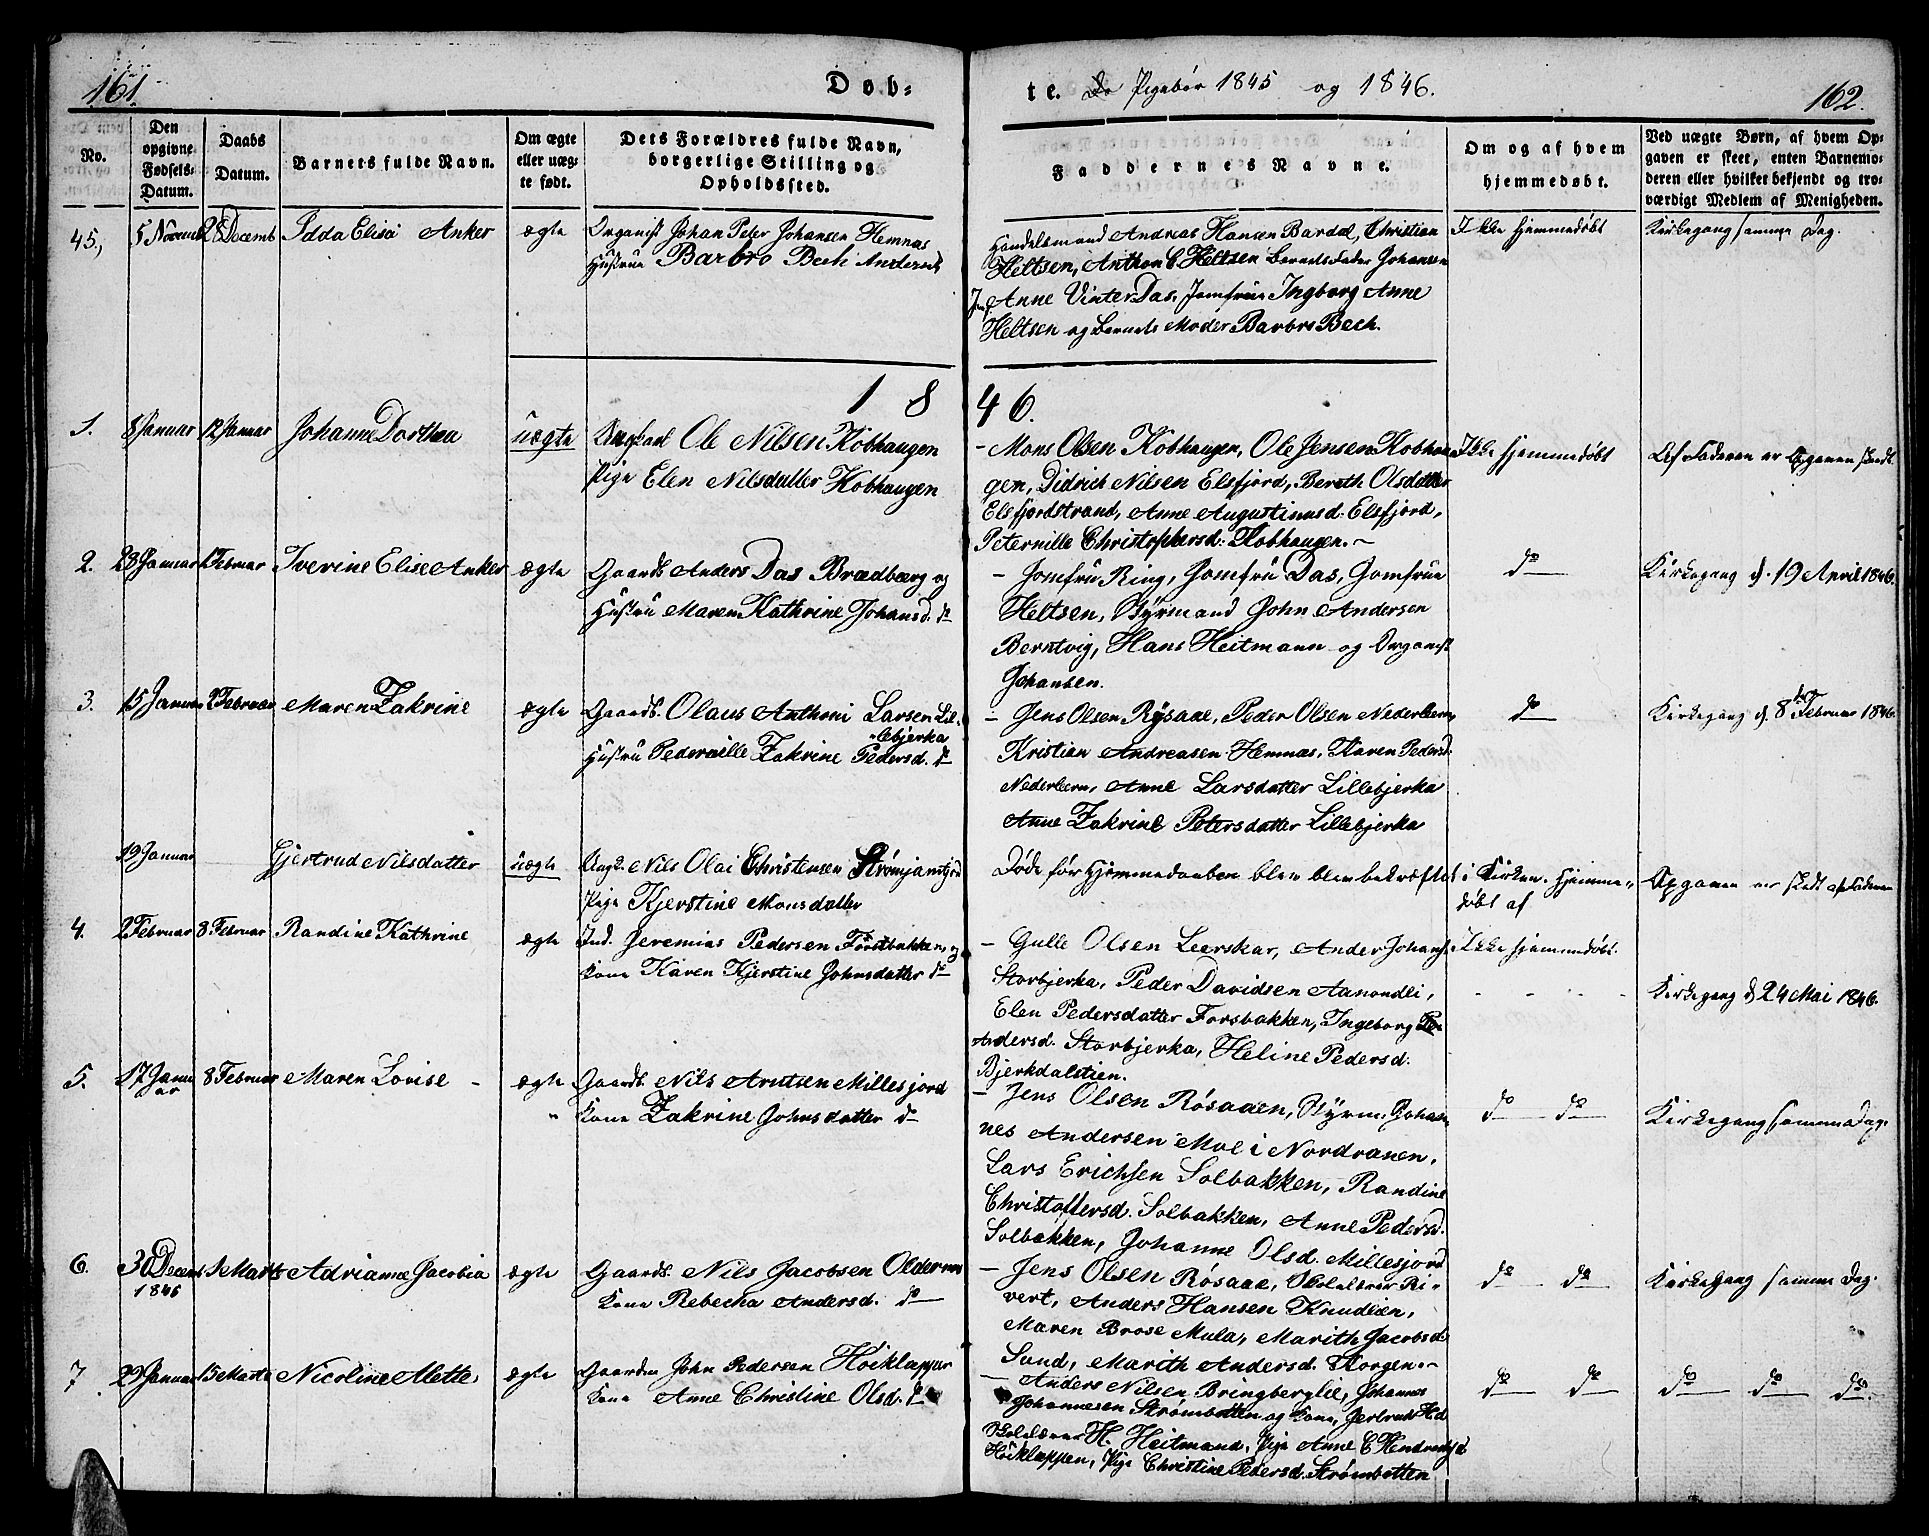 161.
Døb-
te. Do Pigebör 1845 og 1846.
162.
No.
Den opgivne Fødsels-Datum.
Daabs Datum.
Barnets fulde Navn.
Om ægte eller uæg-te født.
Dets Forældres fulde Navn, borgerlige Stilling og Opholdssted.
Faddernes Navne.
Om og af hvem hjemmedøbt.
Ved uægte Børn, af hvem Op-gaven er skeet, enten Barnemo-deren eller hvilket bekjendt og tro-værdigt Medlem af Menigheden.
45, 5 Novemb 28 Decemb Idda Elisa Anker ægte Organist Johan Peter Johansen Hemnæs
Hustrue Barbro Bech Andersd
Handelsmand Andreas Hansen Bardal, Christian
Heltsen, Anthon C Heltsen Barnets Fader Johansen
Jmf. Anne Vinter Das, Jomfrue Ingborg Anne
Heltsen og Barnets Moder Barbro Bech.
Ikke hjemmedøbt
Kirkegang samme Dag.
1846.
1. 8 Januar 12 Januar Johanne Dorthea uægte Ungkarl Ole Nilsen Kobhaugen
Pige Elen Nilsdatter Kobhaugen
- Mons Olsen Kobhaugen, Ole Jensen Kobhau
gen, Didrich Nilsen Elsfjord, Bereth Olsdatter
Elsfjordstrand, Anne Augustinusd. Elsfjord,
Peternille Christophersd: Kobhaugen. -
Ikke hjemmedøbt
Af Faderen er Opgaven skeedt
2. 28 Januar 1 Februar Iverine Elise Anker ægte Gaardb. Anders Das Brædbærg og
Hustru Maren Kathrine Johansd. do
- Jomfru Ring, Jomfrü Das, Jomfrue
Heltsen, Styrmand John Andersen
Berntvig, Hans Heitmann og Organist
Johansen.
do
Kirkegang d. 19 April 1846.
3. 15 Januar 2 Februar Maren Zakrine ægte Gaardb. Olaus Anthoni Larsen Lil-
lebjerka
Hustru Pedernille Zakrine Pedersd. do
- Jens Olsen Røsaae, Peder Olsen Nederleern,
Kristian Andreasen Hemnæs, Karen Pedersd.
Nederleern, Anne Larsdatter Lillebjerka
Anne Zakrine Petersdatter Lillebjerka
do
Kirkegang d. 8 Februar 1846.
19 Januar Gjertrud Nilsdatter uægte Ungk. Nils Olai Christensen Strømjamfjord
Pige Kjerstine Monsdatter
Døde før Hjemmedaaben blev bekræftet i Kirken. Hjemme-
døbt af
Opgaven er skedt af Faderen
4. 2 Februar 8 Februar Randine Kathrine ægte Ind. Jeremias Pedersen Forsbakken, og
Kone Karen Kjerstine Johnsdatter do
- Gulle Olsen Leerskar, Ander Johanse
Storbjerka, Peder Davidsen Aanondli,
Elen Pedersdatter Forsbakken, Ingeborg
Andersd. Storbjerka, Heline Pedersd.
Bjerkdalstien.
Ikke hjemmedøbt.
Kirkegang d 24 Mai 1846.
5. 17 Janu
ar 8 Februar Maren Lovise - ægte Gaardb. Nils Arntsen Millesjord
" Kone Zakrine Johnsdatter do
- Jens Olsen Røsaaen, Styrm. Johan-
nes Andersen Moe i Nordranen,
Lars Erichsen Solbakken, Randine
Christoffersd. Solbakken, Anne Pedersd.
Solbakken, Johanne Olsd. Millesjord
do do
Kirkegang samme Dag.
6. 30 Decemb
1845 1 Marts Adrianæ Jacobia ægte Gaardb. Nils Jacobsen Olderneæs
Kone Rebecka Andersd. do
- Jens Olsen Røsaae, Skolelærer Si-
vert, Anders Hansen Knudlien,
Maren Brose Mula, Marith Jacobsd
Sund, Marith Andersd. Korgen. -
do do
Kirkegang samme Dag.
7. 29 Januar 15 Marts Nicoline Alette ægte Gaardm John Pedersen Höiklappen
Kone Anne Christine Olsd. do
- Anders Nilsen Bringberglie, Johannes
Johannesen Strømbotten og Kone, Jertrud H.d
Skolelærer H. Heitmand, Pige Anne C Hendrichsd
Höiklappen, Pige Christine Pedersd. Strømbotten
do do
do do do.